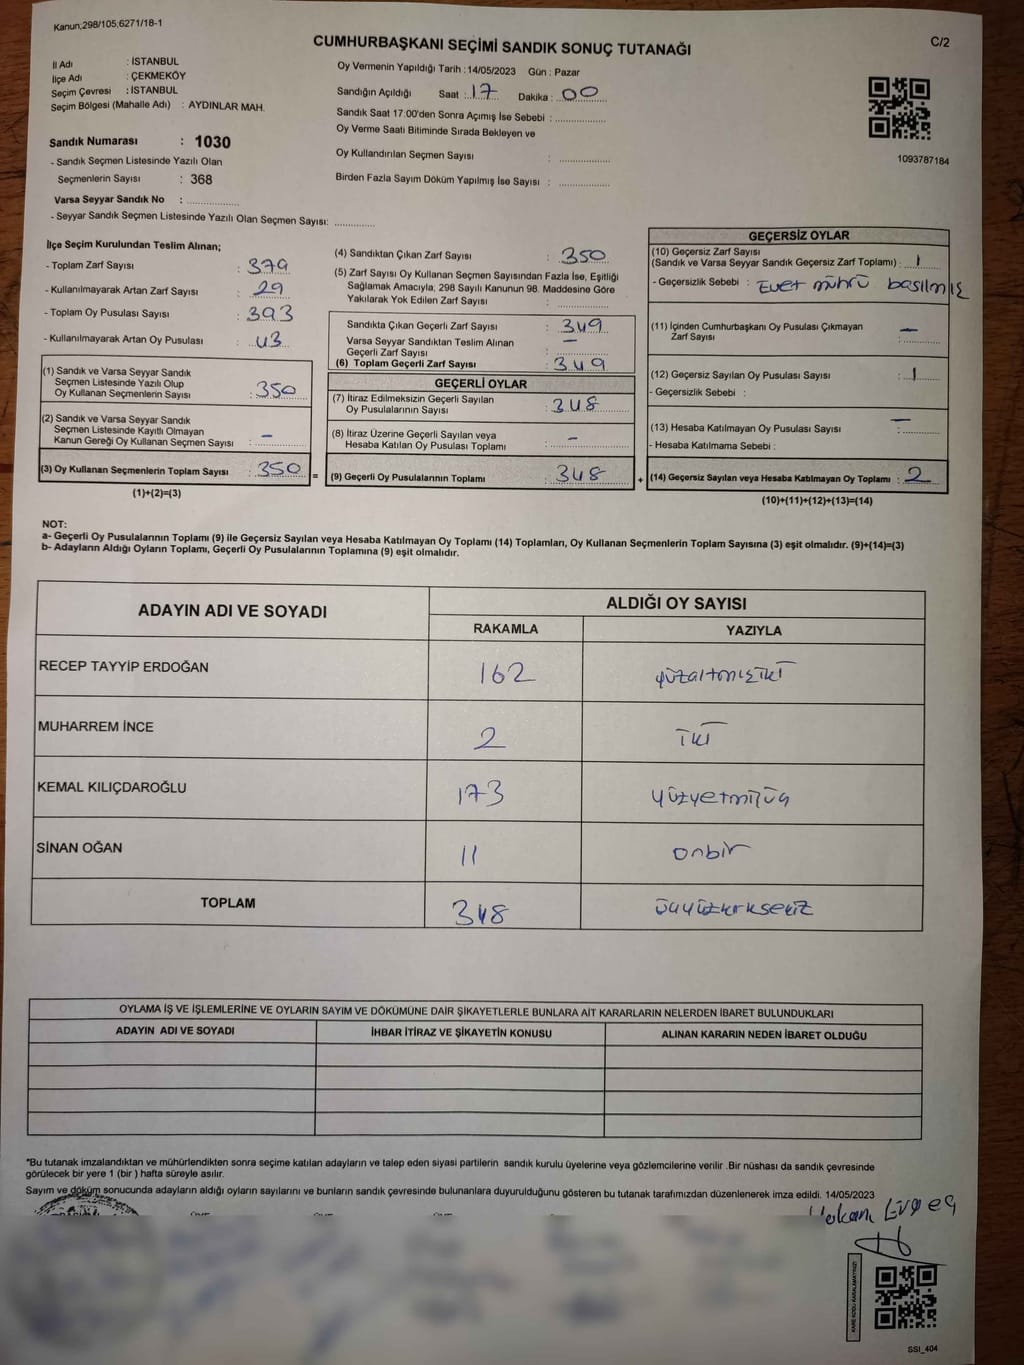 Kanun;298/105;6271/18-1
C/2
CUMHURBAŞKANI SEÇİMİ SANDIK SONUÇ TUTANAĞI
İl Adı : İSTANBUL
İlçe Adı : ÇEKMEKÖY
Seçim Çevresi : İSTANBUL
Seçim Bölgesi (Mahalle Adı) : AYDINLAR MAH.
Sandık Numarası : 1030
- Sandık Seçmen Listesinde Yazılı Olan
Seçmenlerin Sayısı : 368
Varsa Seyyar Sandık No : ...............
- Seyyar Sandık Seçmen Listesinde Yazılı Olan Seçmen Sayısı: ............
Oy Vermenin Yapıldığı Tarih : 14/05/2023 Gün : Pazar
Sandığın Açıldığı Saat : 17 Dakika : 00
Sandık Saat 17:00'den Sonra Açımış İse Sebebi : ...............
Oy Verme Saati Bitiminde Sırada Bekleyen ve
Oy Kullandırılan Seçmen Sayısı : ...............
Birden Fazla Sayım Döküm Yapılmış İse Sayısı : ...............
1093787184
İlçe Seçim Kurulundan Teslim Alınan;
- Toplam Zarf Sayısı : 379
- Kullanılmayarak Artan Zarf Sayısı : 29
- Toplam Oy Pusulası Sayısı : 393
- Kullanılmayarak Artan Oy Pusulası : 43
(1) Sandık ve Varsa Seyyar Sandık
Seçmen Listesinde Yazılı Olup
Oy Kullanan Seçmenlerin Sayısı : 350
(2) Sandık ve Varsa Seyyar Sandık
Seçmen Listesinde Kayıtlı Olmayan
Kanun Gereği Oy Kullanan Seçmen Sayısı : -
(3) Oy Kullanan Seçmenlerin Toplam Sayısı : 350 =
(1)+(2)=(3)
(4) Sandıktan Çıkan Zarf Sayısı : 350
(5) Zarf Sayısı Oy Kullanan Seçmen Sayısından Fazla İse, Eşitliği
Sağlamak Amacıyla; 298 Sayılı Kanunun 98. Maddesine Göre
Yakılarak Yok Edilen Zarf Sayısı : ...............
Sandıkta Çıkan Geçerli Zarf Sayısı : 349
Varsa Seyyar Sandıktan Teslim Alınan
Geçerli Zarf Sayısı : -
(6) Toplam Geçerli Zarf Sayısı : 349
GEÇERLİ OYLAR
(7) İtiraz Edilmeksizin Geçerli Sayılan
Oy Pusulalarının Sayısı : 348
(8) İtiraz Üzerine Geçerli Sayılan veya
Hesaba Katılan Oy Pusulası Toplamı : -
(9) Geçerli Oy Pusulalarının Toplamı : 348 +
GEÇERSİZ OYLAR
(10) Geçersiz Zarf Sayısı
(Sandık ve Varsa Seyyar Sandık Geçersiz Zarf Toplamı) : 1
- Geçersizlik Sebebi : Evet mührü basılmış
(11) İçinden Cumhurbaşkanı Oy Pusulası Çıkmayan
Zarf Sayısı : -
(12) Geçersiz Sayılan Oy Pusulası Sayısı : 1
- Geçersizlik Sebebi :
(13) Hesaba Katılmayan Oy Pusulası Sayısı : -
- Hesaba Katılmama Sebebi :
(14) Geçersiz Sayılan veya Hesaba Katılmayan Oy Toplamı : 2
(10)+(11)+(12)+(13)=(14)
NOT:
a- Geçerli Oy Pusulalarının Toplamı (9) ile Geçersiz Sayılan veya Hesaba Katılmayan Oy Toplamı (14) Toplamları, Oy Kullanan Seçmenlerin Toplam Sayısına (3) eşit olmalıdır. (9)+(14)=(3)
b- Adayların Aldığı Oyların Toplamı, Geçerli Oy Pusulalarının Toplamına (9) eşit olmalıdır.
ADAYIN ADI VE SOYADI ALDIĞI OY SAYISI
RAKAMLA YAZIYLA
RECEP TAYYİP ERDOĞAN 162 yüzaltmışiki
MUHARREM İNCE 2 iki
KEMAL KILIÇDAROĞLU 173 yüzyetmişüç
SİNAN OĞAN 11 onbir
TOPLAM 348 üçyüzkırksekiz
OYLAMA İŞ VE İŞLEMLERİNE VE OYLARIN SAYIM VE DÖKÜMÜNE DAİR ŞİKAYETLERLE BUNLARA AİT KARARLARIN NELERDEN İBARET BULUNDUKLARI
ADAYIN ADI VE SOYADI İHBAR İTİRAZ VE ŞİKAYETİN KONUSU ALINAN KARARIN NEDEN İBARET OLDUĞU
*Bu tutanak imzalandıktan ve mühürlendikten sonra seçime katılan adayların ve talep eden siyasi partilerin sandık kurulu üyelerine veya gözlemcilerine verilir .Bir nüshası da sandık çevresinde
görülecek bir yere 1 (bir ) hafta süreyle asılır.
Sayım ve döküm sonucunda adayların aldığı oyların sayılarını ve bunların sandık çevresinde bulunanlara duyurulduğunu gösteren bu tutanak tarafımızdan düzenlenerek imza edildi. 14/05/2023
SSI_404